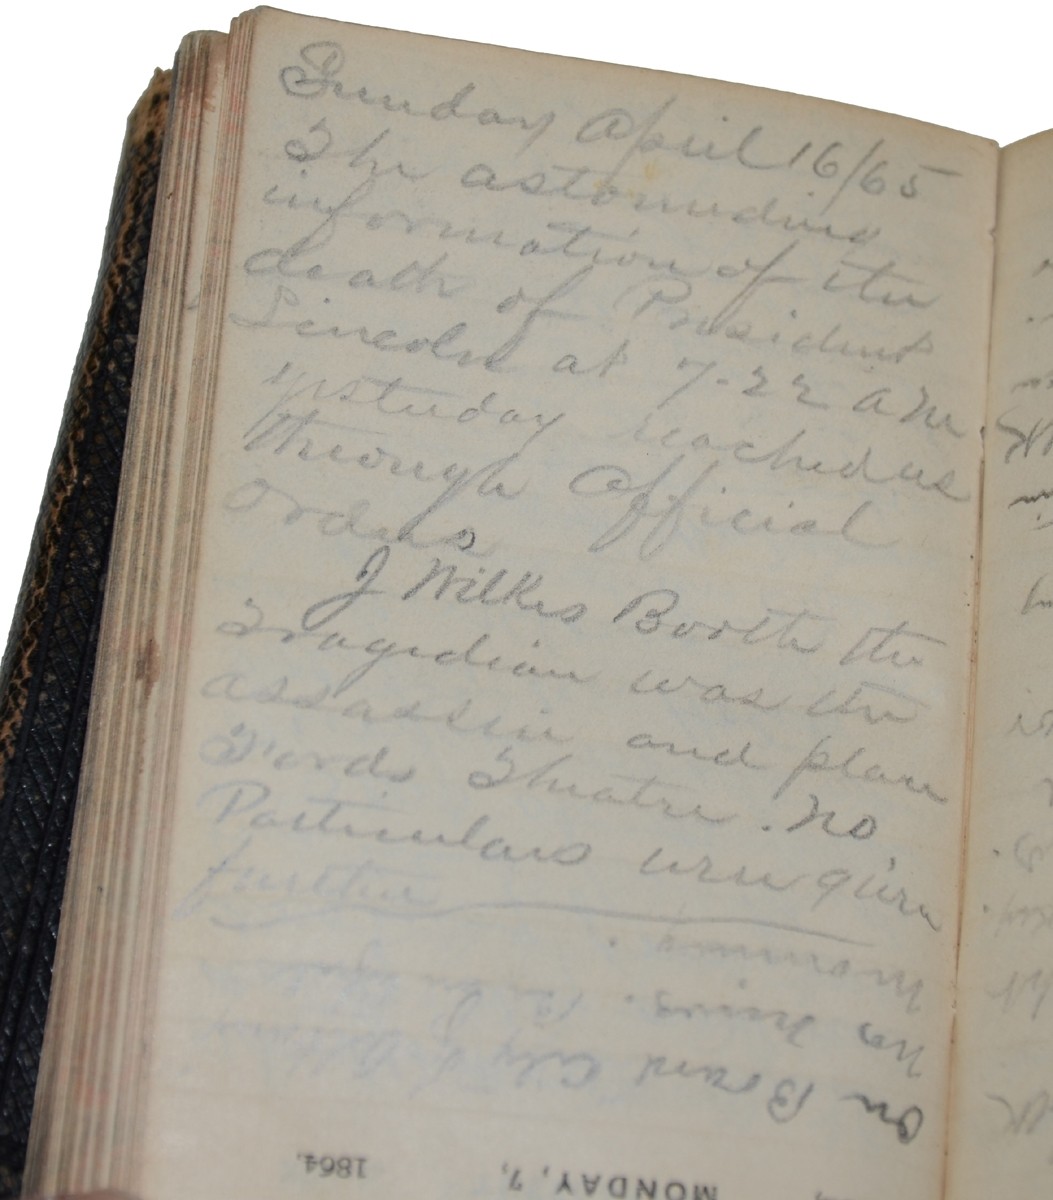 Sunday April 16/65
The astounding
information of the
death of President
Lincoln at 7-22 a m.
yesterday reached us
through official
orders
J Wilkes Booth the
Tragedian was the
assassin and place
Fords Theatre. No
Particulars were given
further
morning.
No news.
On Board City of
MONDAY, 7, 1864.